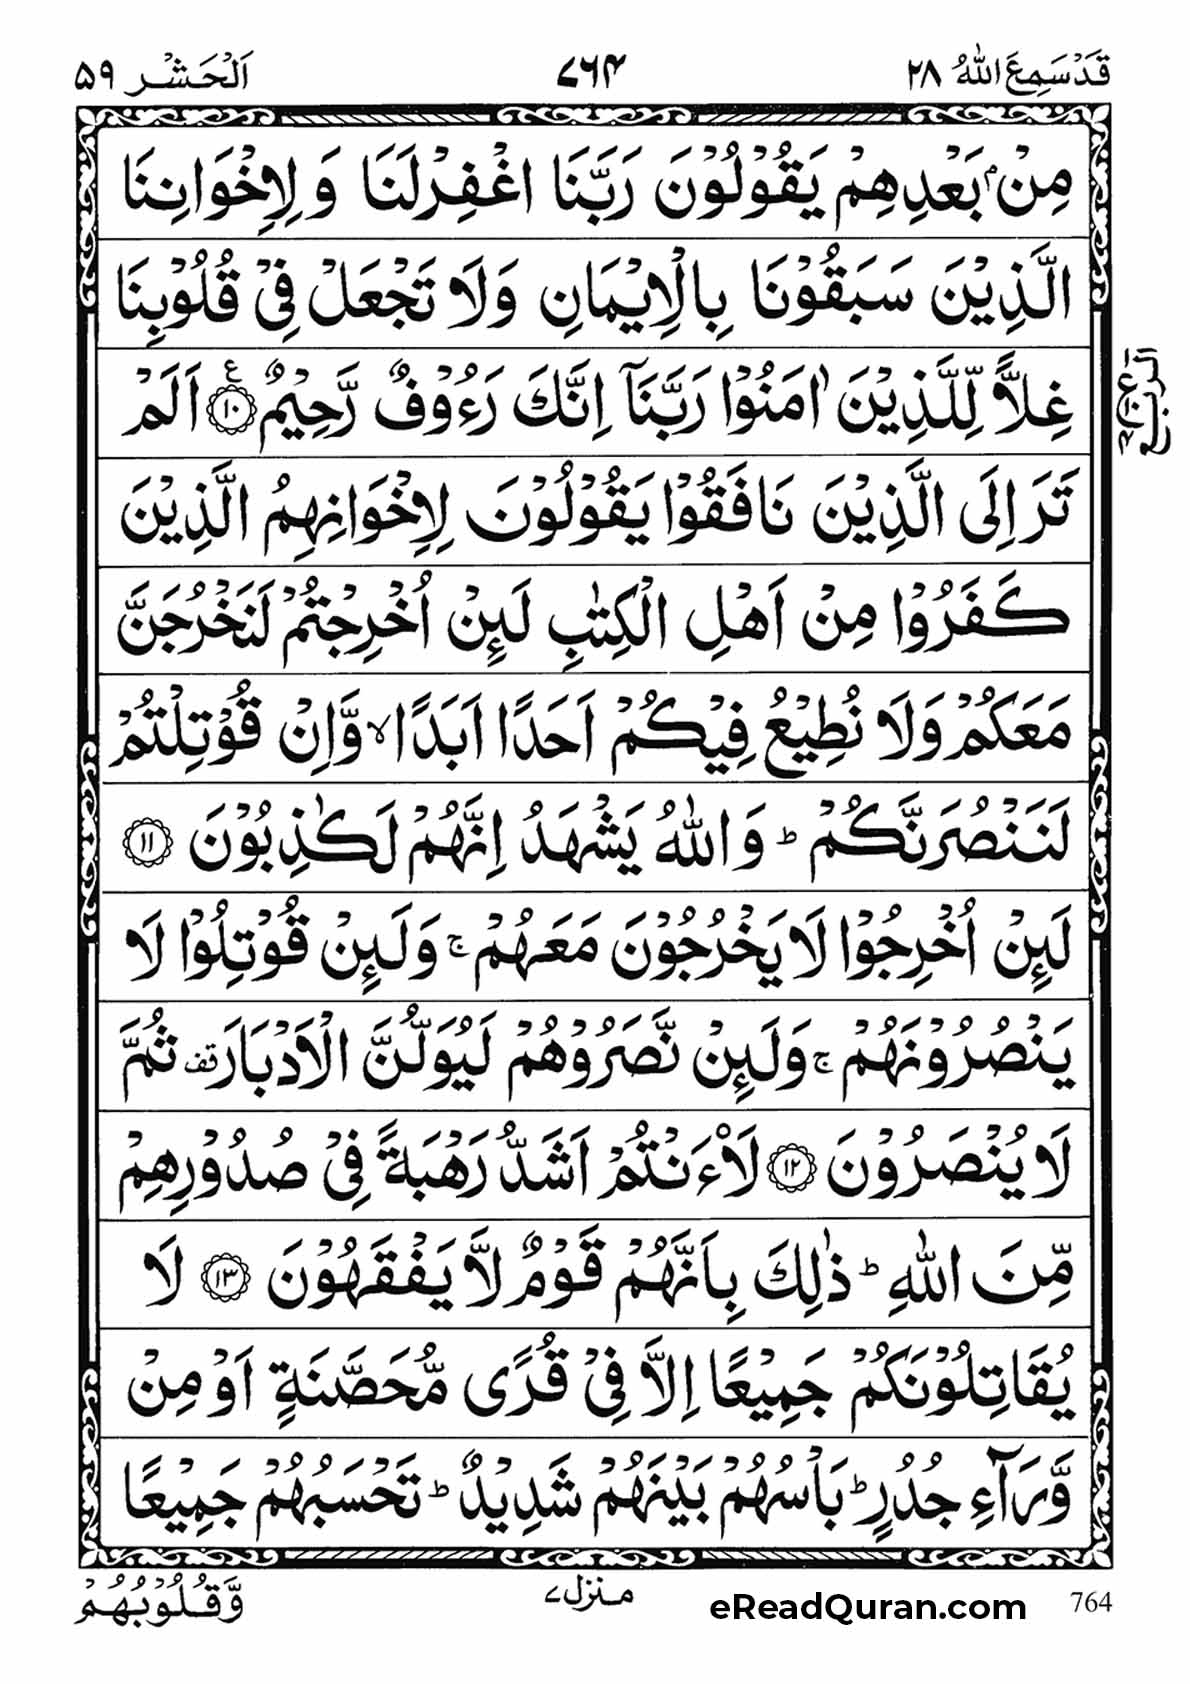 قَدْ سَمِعَ اللهُ ٢٨
٧٦٤
اَلْحَشْر ٥٩
مِنْۢ بَعْدِهِمْ يَقُوْلُوْنَ رَبَّنَا اغْفِرْ لَنَا وَلِاِخْوَانِنَا
الَّذِيْنَ سَبَقُوْنَا بِالْاِيْمَانِ وَلَا تَجْعَلْ فِيْ قُلُوْبِنَا
غِلًّا لِّلَّذِيْنَ اٰمَنُوْا رَبَّنَآ اِنَّكَ رَءُوْفٌ رَّحِيْمٌ ١٠ ع اَلَمْ
تَرَ اِلَى الَّذِيْنَ نَافَقُوْا يَقُوْلُوْنَ لِاِخْوَانِهِمُ الَّذِيْنَ
كَفَرُوْا مِنْ اَهْلِ الْكِتٰبِ لَىِٕنْ اُخْرِجْتُمْ لَنَخْرُجَنَّ
مَعَكُمْ وَلَا نُطِيْعُ فِيْكُمْ اَحَدًا اَبَدًا ۙ وَّاِنْ قُوْتِلْتُمْ
لَنَنْصُرَنَّكُمْ ؕ وَاللهُ يَشْهَدُ اِنَّهُمْ لَكٰذِبُوْنَ ١١
لَىِٕنْ اُخْرِجُوْا لَا يَخْرُجُوْنَ مَعَهُمْ ۚ وَلَىِٕنْ قُوْتِلُوْا لَا
يَنْصُرُوْنَهُمْ ۚ وَلَىِٕنْ نَّصَرُوْهُمْ لَيُوَلُّنَّ الْاَدْبَارَ قف ثُمَّ
لَا يُنْصَرُوْنَ ١٢ لَاَ۬نْتُمْ اَشَدُّ رَهْبَةً فِيْ صُدُوْرِهِمْ
مِّنَ اللهِ ؕ ذٰلِكَ بِاَنَّهُمْ قَوْمٌ لَّا يَفْقَهُوْنَ ١٣ لَا
يُقَاتِلُوْنَكُمْ جَمِيْعًا اِلَّا فِيْ قُرًى مُّحَصَّنَةٍ اَوْ مِنْ
وَّرَآءِ جُدُرٍ ؕ بَاْسُهُمْ بَيْنَهُمْ شَدِيْدٌ ؕ تَحْسَبُهُمْ جَمِيْعًا
وَّقُلُوْبُهُمْ
منزل ٧
eReadQuran.com
764